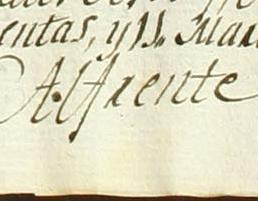 entas, y 11. Mar
Al frente